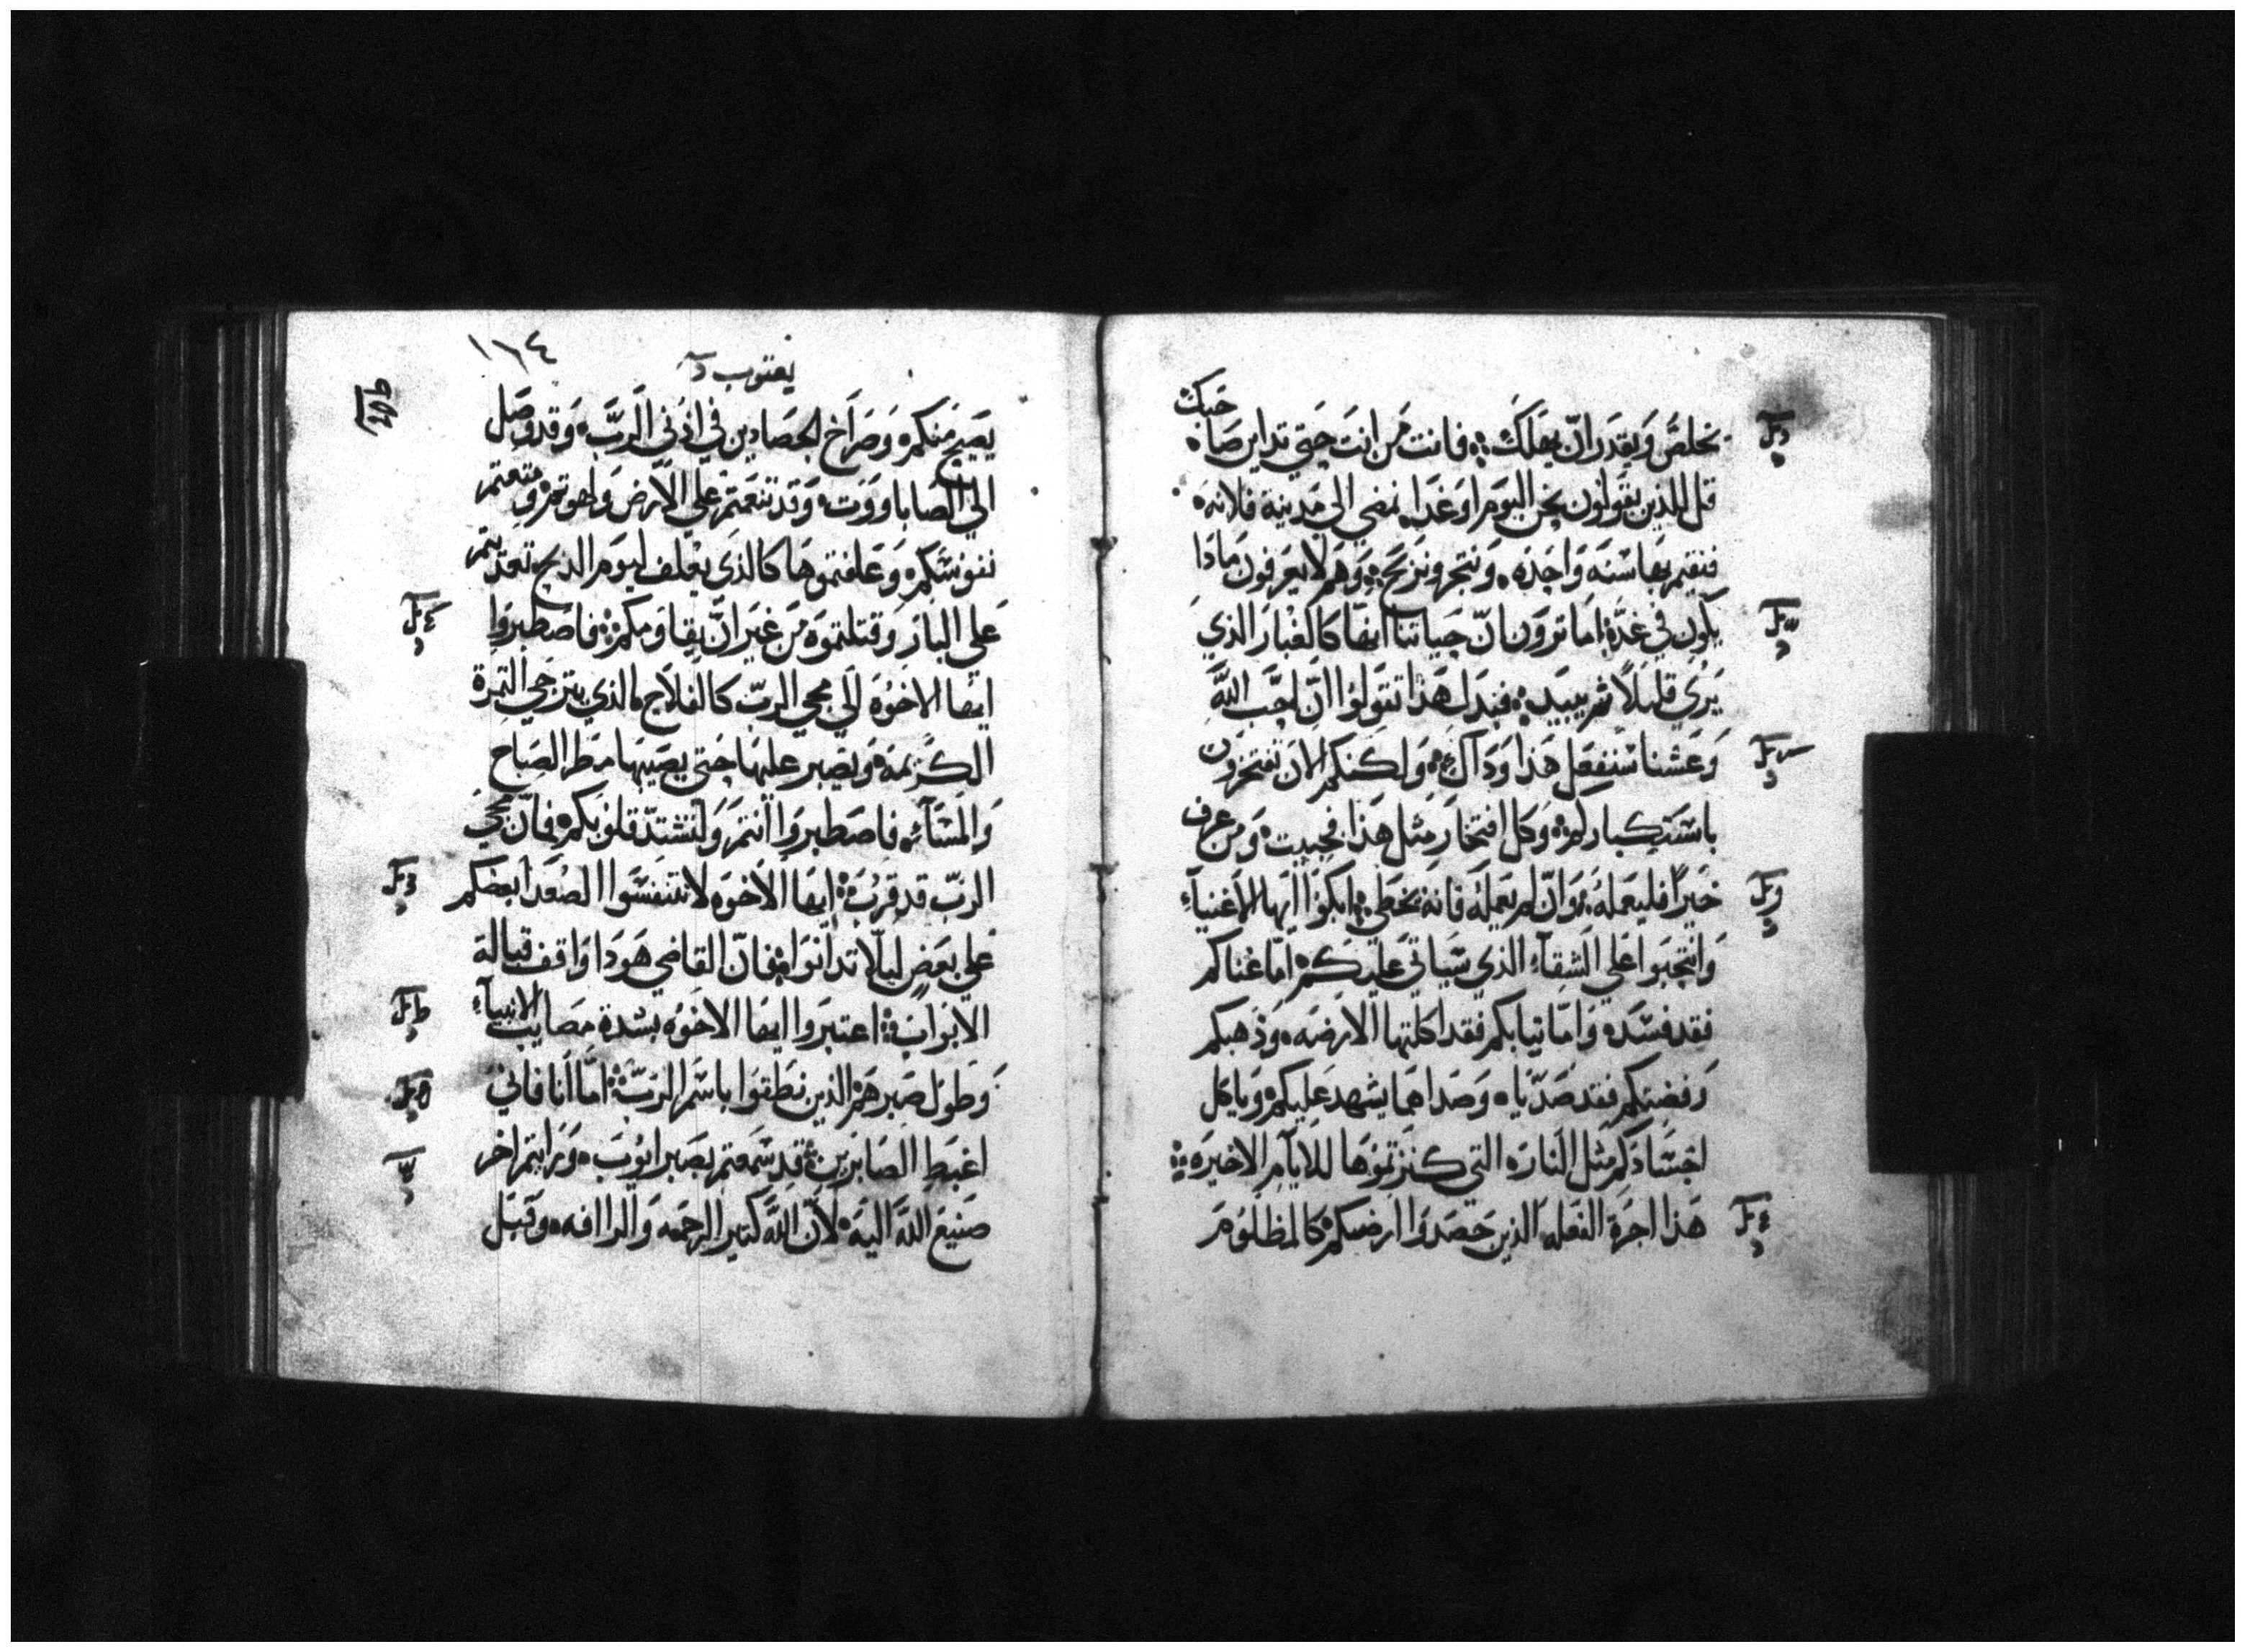 يخلص ويقدر ان يهلك فانت من انت حتي تداين صاحبك
قل للذين يقولون نحن اليوم او غدا نمضي الي مدينة فلانه
فنقيم بها سنه واحده ونتجر ونربح وهم لا يعرفون ماذا
يكون في غدا اما ترون ان حياتنا انها كالغبار الذي
يري قليلا ثم يبيد فبدل هذا تقولوا ان احب الله
وعشنا سنفعل هذا وذاك ولكنكم الان تفتخرون
باستكباركم وكل افتخار مثل هذا خبيث ومن عرف
خيرا فليعمله وان لم يعمله فانه يخطي ابكوا ايها الاغنياء
وانتحبوا علي الشقاء الذي سياتي عليكم اما غناكم
فقد فسد واما ثيابكم فقد اكلتها الارضه وذهبكم
وفضتكم فقد صديا وصداهما يشهد عليكم وياكل
اجسادكم مثل النار التي كنزتموها للايام الاخيره
هذا اجرة الفعله الذين حصدوا ارضكم كالمظلوم
١١٤
يعقوب
يصيح منكم وصراخ الحصادين في اذني الرب وقد وصل
الي الصاباووت وقد تنعمتم علي الارض ولهوتم ومتعتم
نفوسكم وعلفتموها كالذي يعلف ليوم الذبح تعديتم
علي البار وقتلتموه من غير ان يقاومكم فاصطبروا
ايها الاخوه الي مجي الرب كالفلاح الذي يترجي الثمرة
الكريمه ويصبر عليها حتي يصيبها مطر الصباح
والمساء فاصطبروا انتم ولتشتد قلوبكم فان مجي
الرب قد قرب ايها الاخوه لا تتنفسوا الصعدا بعضكم
علي بعض ليلا تدانوا فان القاضي هودا واقف قبالة
الابواب اعتبروا ايها الاخوه بشدة مصايب الانبياء
وطول صبرهم الذين نطقوا باسم الرب اما انا فاني
اغبط الصابرين قد سمعتم بصبر ايوب ورايتم اخر
صنيع الله اليه لان الله كثير الرحمه والراافه وقبل